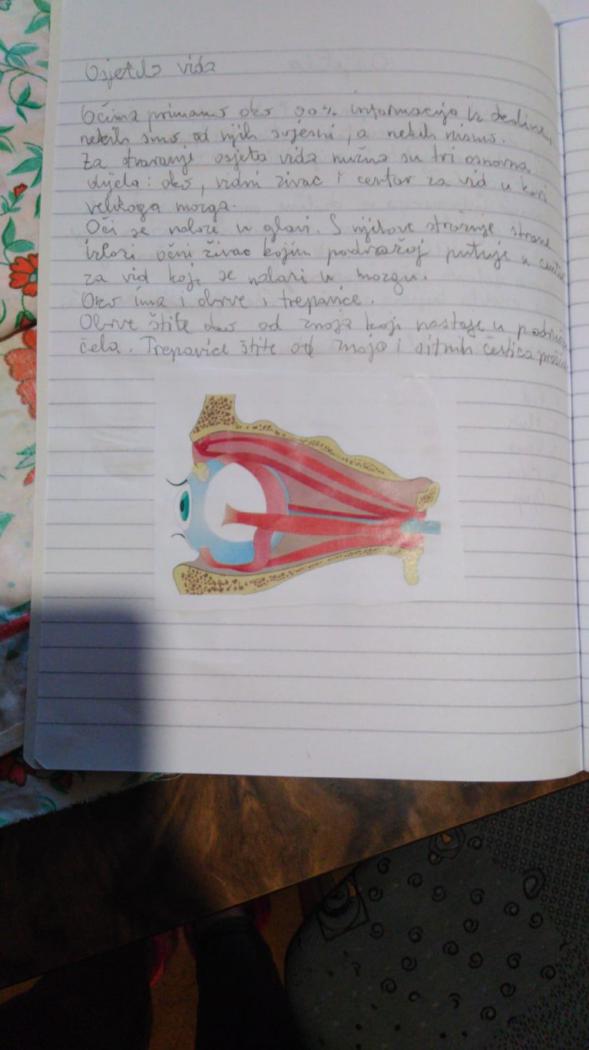 Osjetilo vida
Očima primamo oko 90% informacija iz okoline,
nekih smo od njih svjesni, a nekih nismo.
Za stvaranje osjeta vida nužna su tri osnovna
dijela: oko, vidni živac i centar za vid u kori
velikoga mozga.
Oči se nalaze u glavi. S njihove stražnje strane
izlazi očni živac kojim podražaj putuje u centar
za vid koji se nalazi u mozgu.
Oko ima i obrve i trepavice.
Obrve štite oko od znoja koji nastaje u području
čela. Trepavice štite od znoja i sitnih čestica